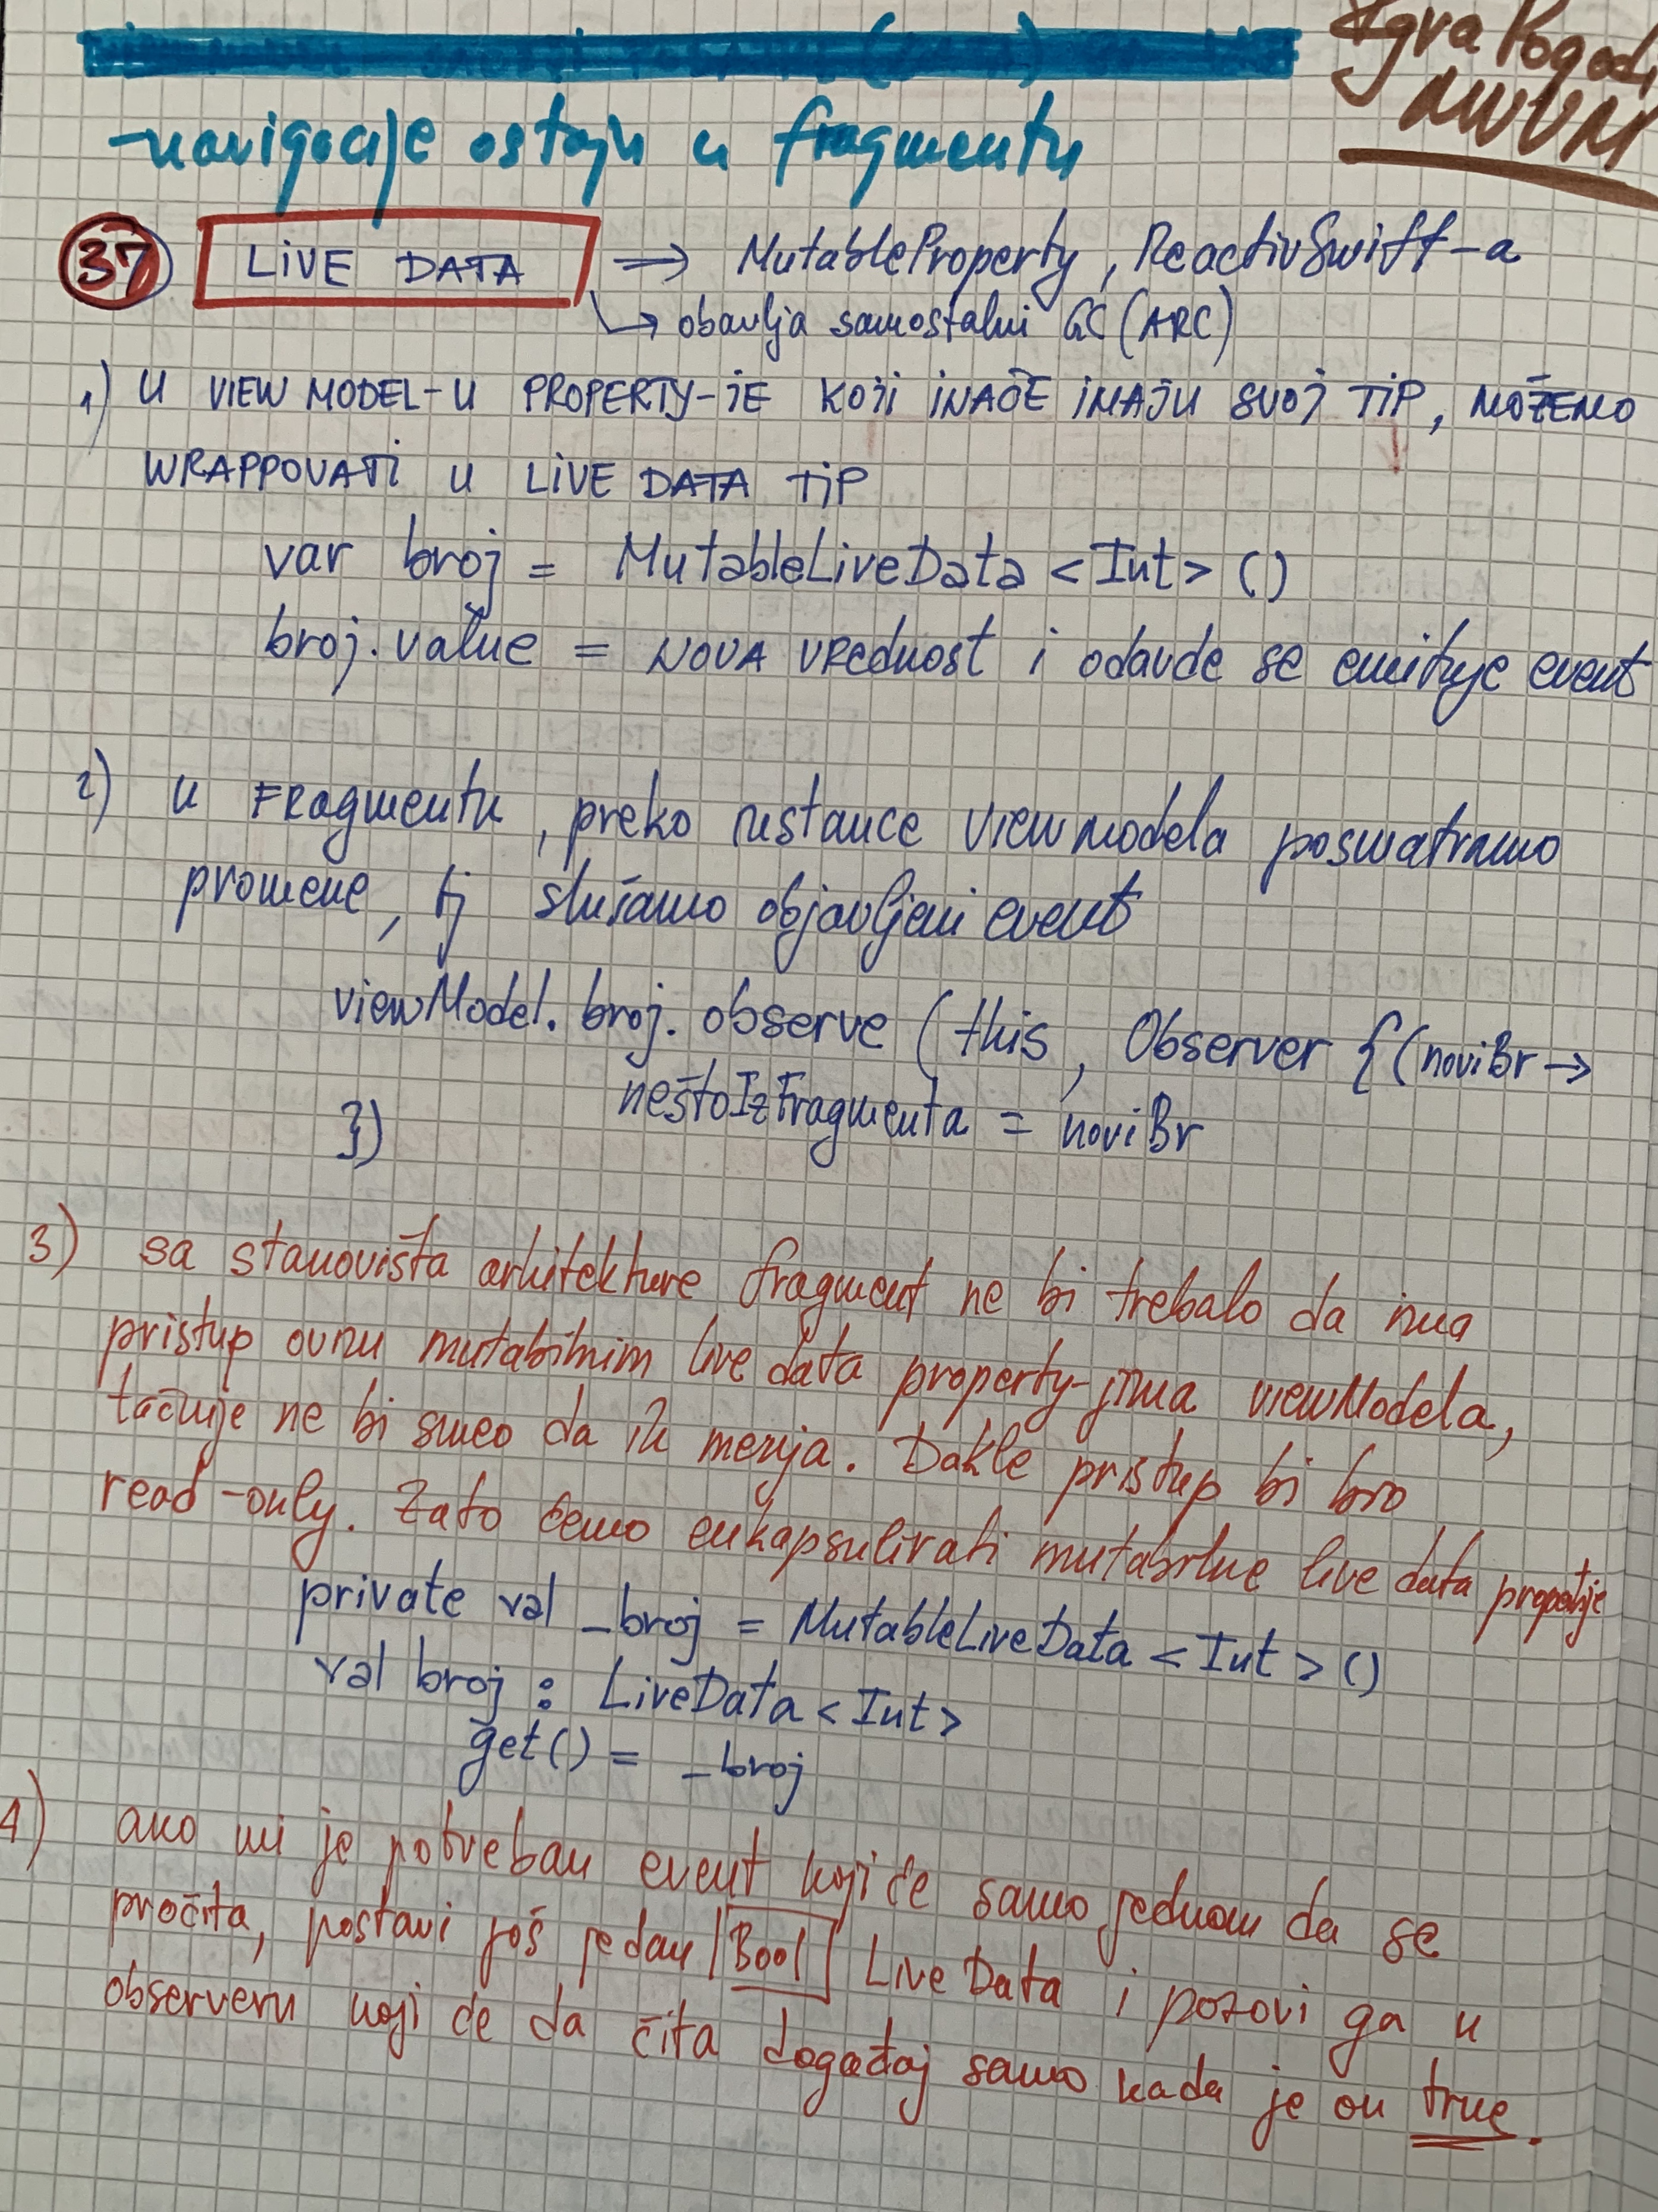 Igra Pogodi
MVVM
-navigacije ostaju u fragmentu
37 LIVE DATA => MutableProperty, ReactivSwift-a
↳ obavlja samostalni GC (ARC)
1) U VIEW MODEL-U PROPERTY-JE KOJI INAČE IMAJU SVOJ TIP, MOŽEMO
WRAPPOVATI U LIVE DATA TIP
var broj = MutableLiveData <Int> ()
broj.value = NOVA VREDNOST i odavde se emituje event
2) U FRAGMENTU, preko instance viewmodela posmatramo
promene, tj slušamo objavljeni event
viewModel.broj.observe (this, Observer {(noviBr →
neštoIzFragmenta = noviBr
})
3) sa stanovišta arhitekture fragment ne bi trebalo da ima
pristup ovim mutabilnim live data property-jima viewModela,
tačnije ne bi smeo da ih menja. Dakle pristup bi bio
read-only. Zato ćemo enkapsulirati mutabilne live data
private val _broj = MutableLiveData <Int> ()
val broj : LiveData <Int>
get() = _broj
4) ako mi je potreban event koji će samo jednom da se
pročita, postavi još jedan |Bool| LiveData i pozovi ga u
observeru koji će da čita događaj samo kada je on true.